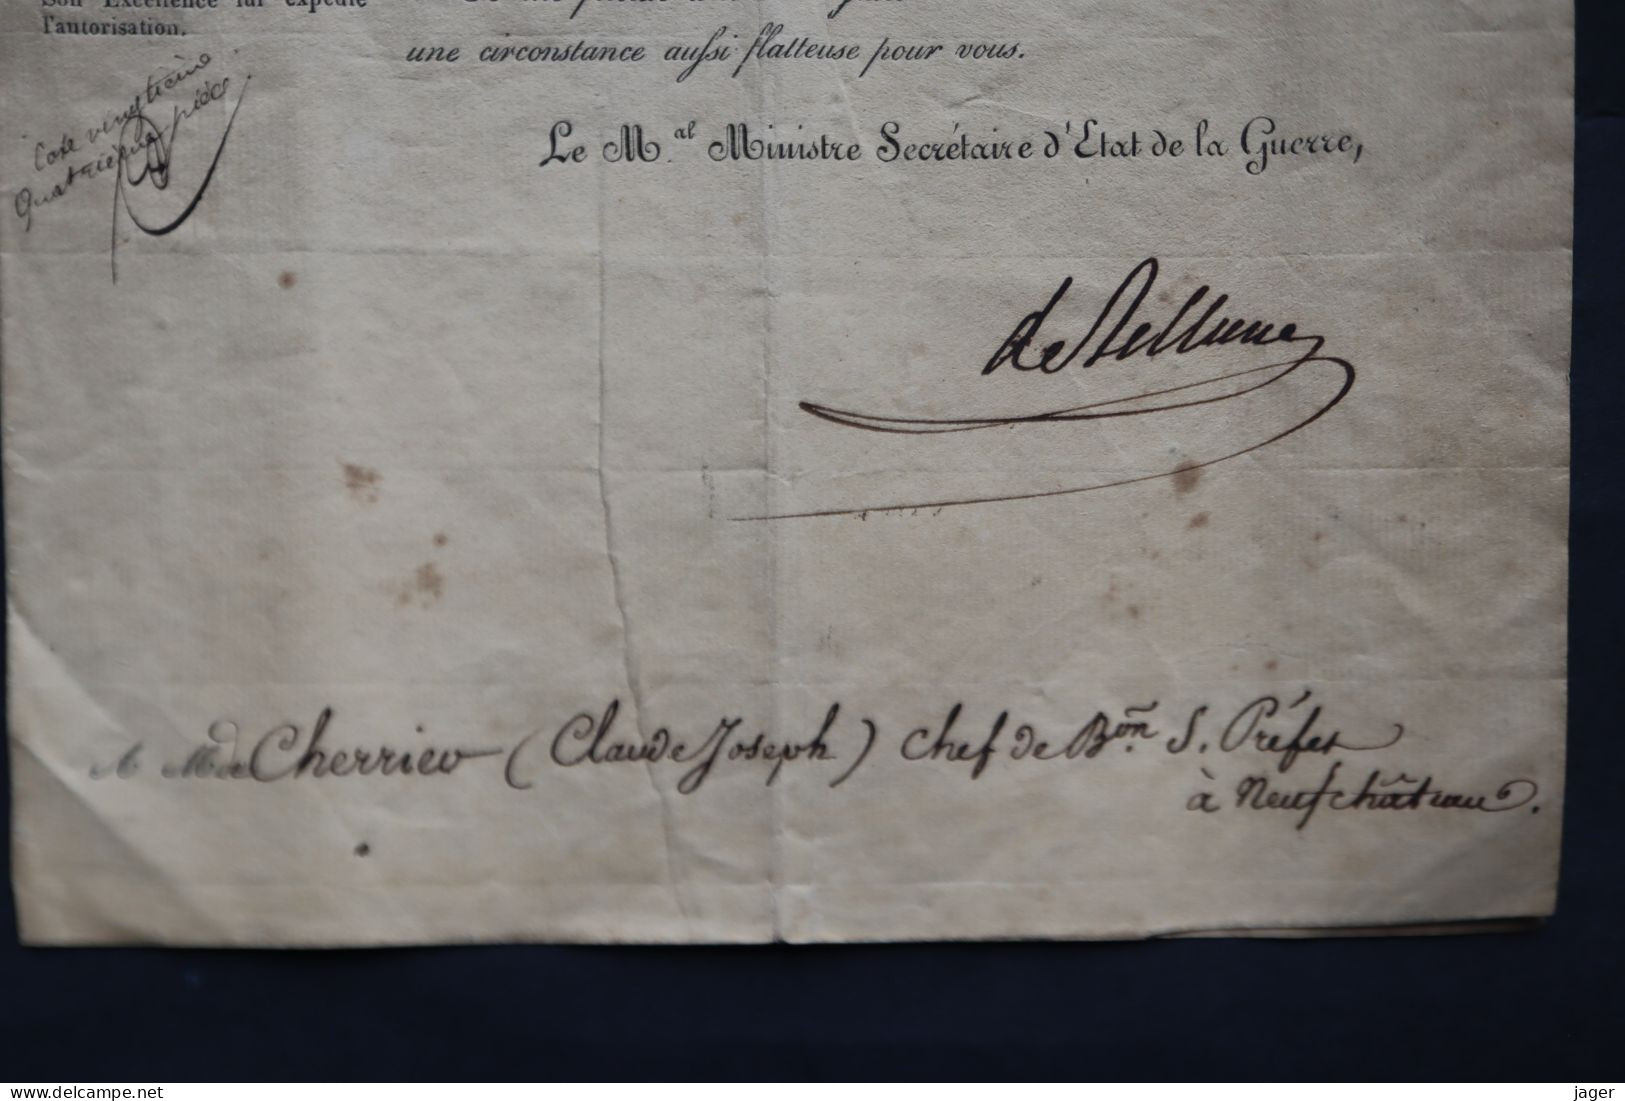 Son Excellence lui expédie
l'autorisation.
une circonstance aussi flatteuse pour vous.
Cote vingtième
Quatrième pièce
Le M.al Ministre Secrétaire d'Etat de la Guerre,
de Bellune
A M. de Cherrier (Claude Joseph) chef de B.on S. Préfet
à Neufchâteau.
delcampe.net
jager